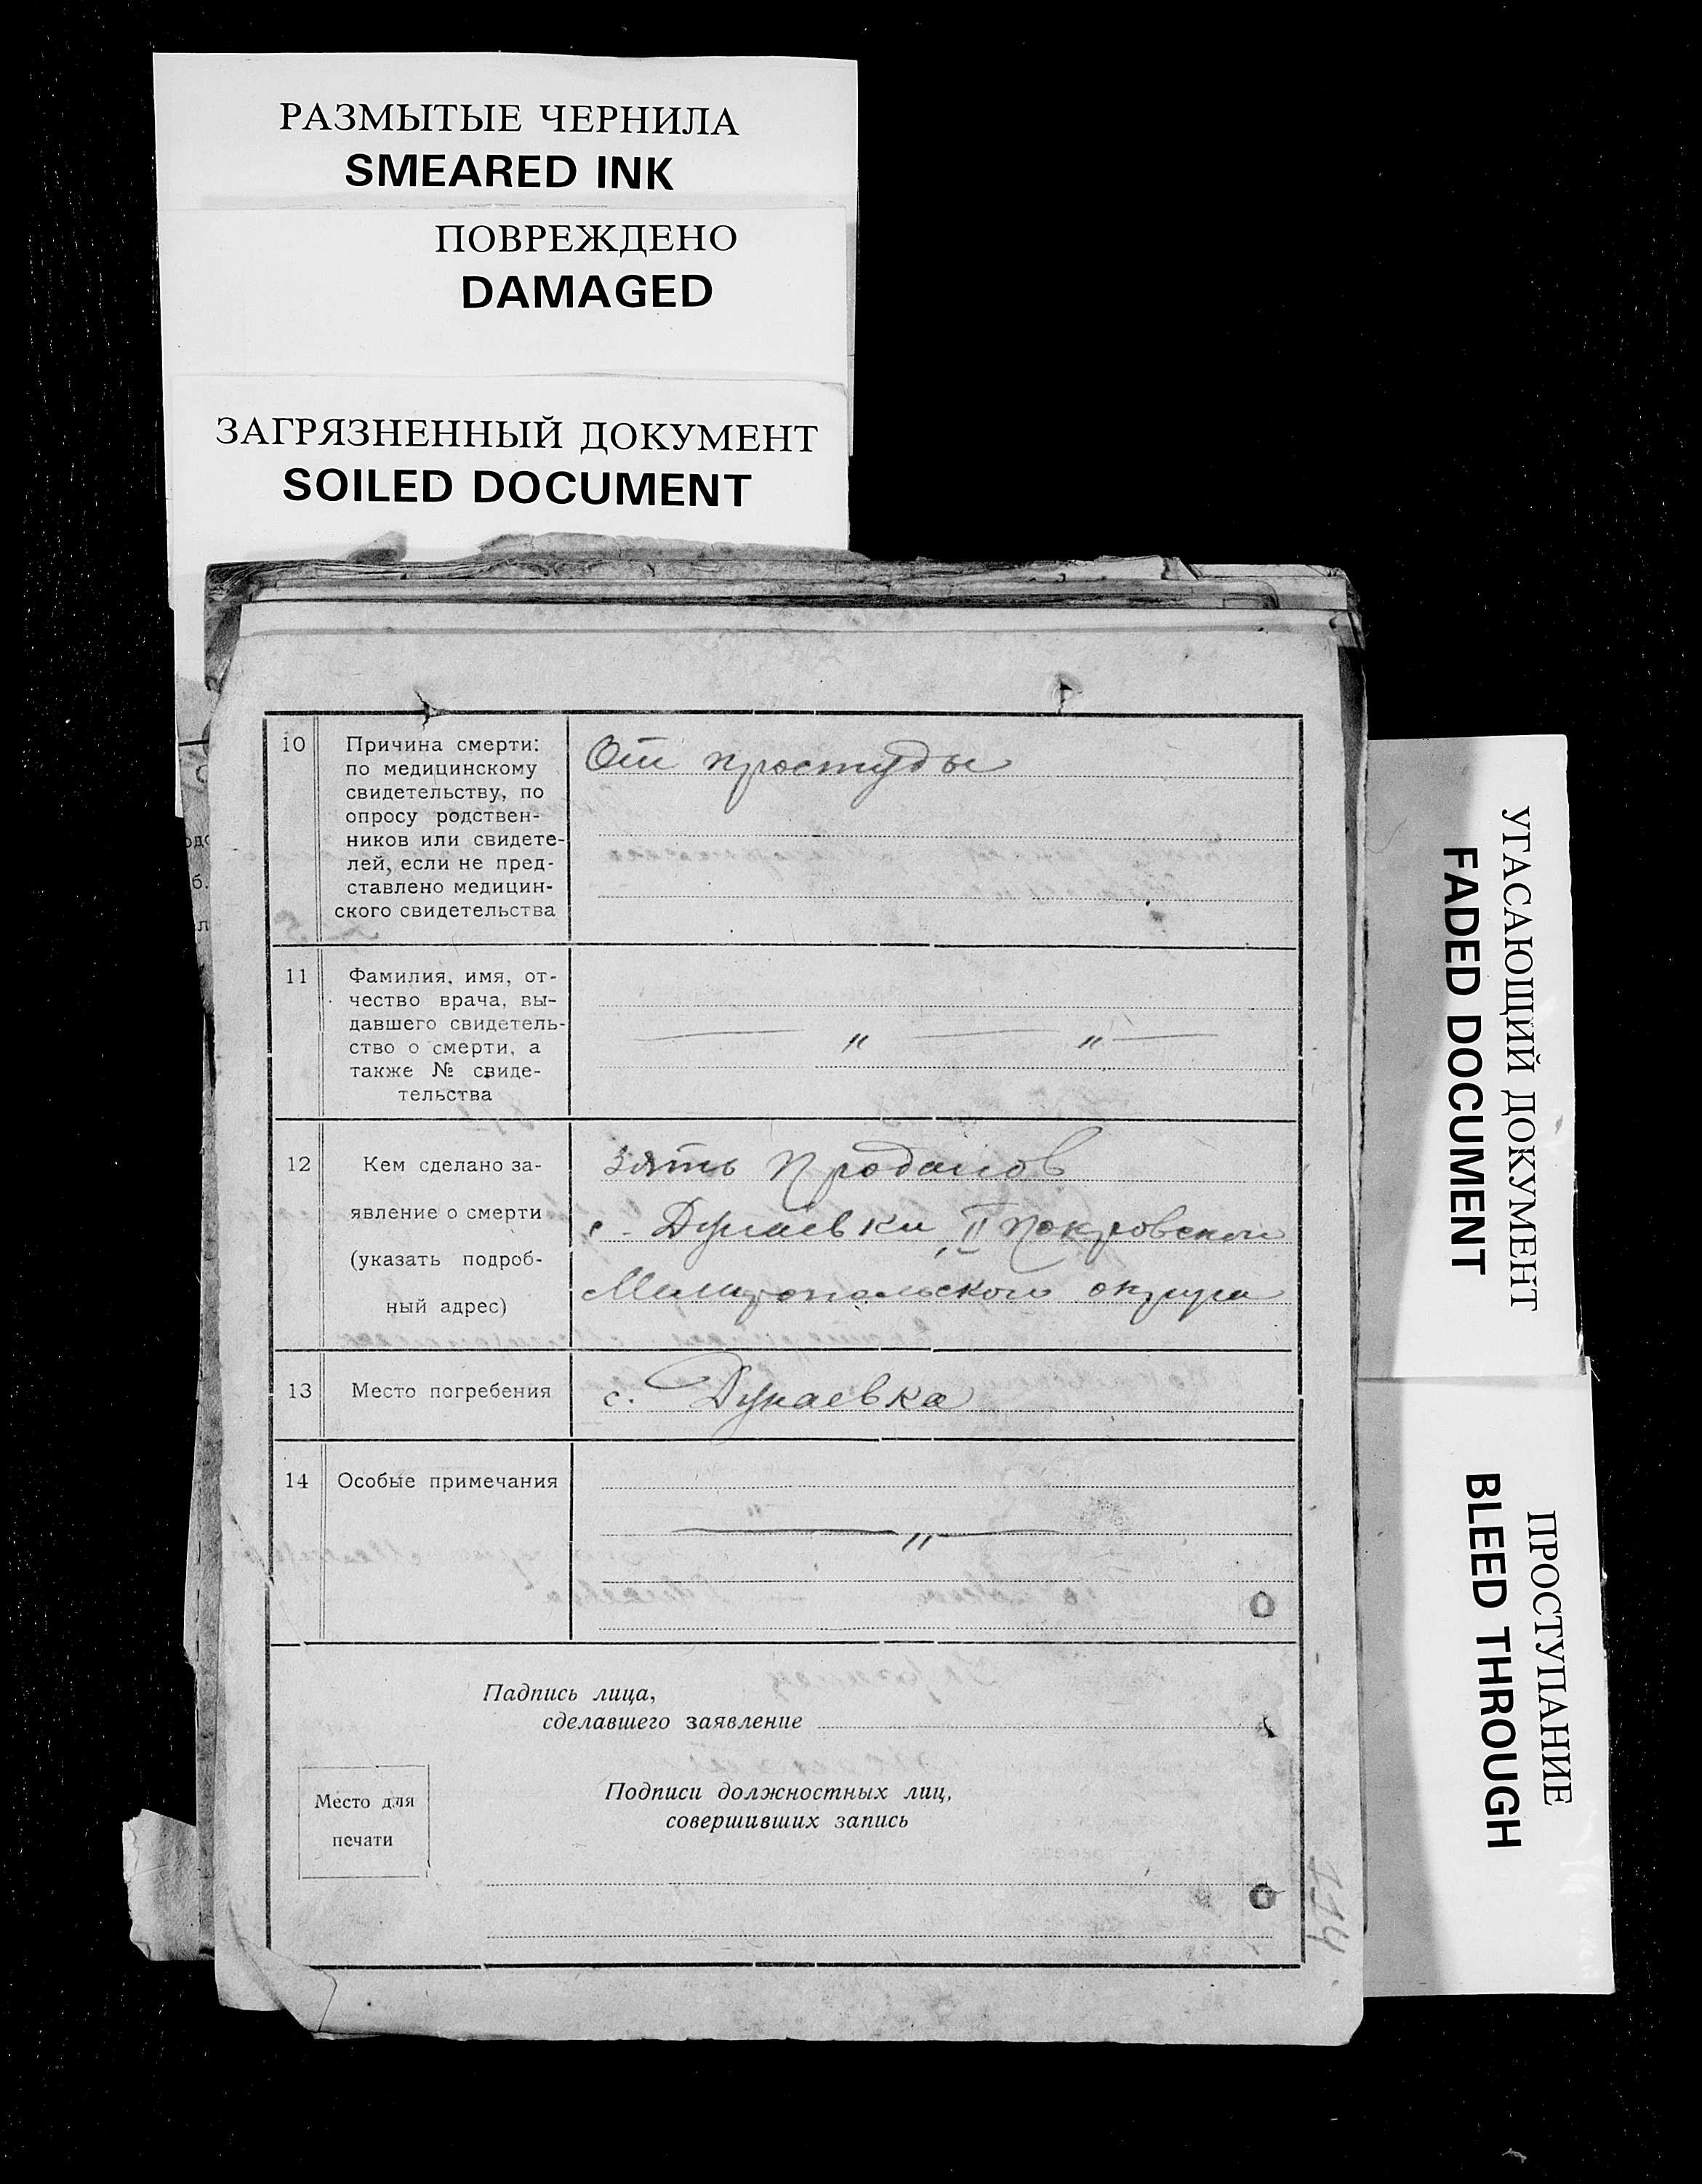 РАЗМЫТЫЕ ЧЕРНИЛА
SMEARED INK
ПОВРЕЖДЕНО
DAMAGED
ЗАГРЯЗНЕННЫЙ ДОКУМЕНТ
SOILED DOCUMENT
10
Причина смерти:
по медицинскому
свидетельству, по
опросу родствен-
ников или свидете-
лей, если не пред-
ставлено медицин-
ского свидетельства
От простуды
11
Фамилия, имя, от-
чество врача, вы-
давшего свидетель-
ство о смерти, а
также № свиде-
тельства
— „ — „ —
12
Кем сделано за-
явление о смерти
(указать подроб-
ный адрес)
зять Проданов
с. Дунаевки, II Покровской
Мелитопольского округа
13
Место погребения
с. Дунаевка
14
Особые примечания
— „ —
Падпись лица,
сделавшего заявление
Место для
печати
Подписи должностных лиц,
совершивших запись
114
УГАСАЮЩИЙ ДОКУМЕНТ
FADED DOCUMENT
ПРОСТУПАНИЕ
BLEED THROUGH